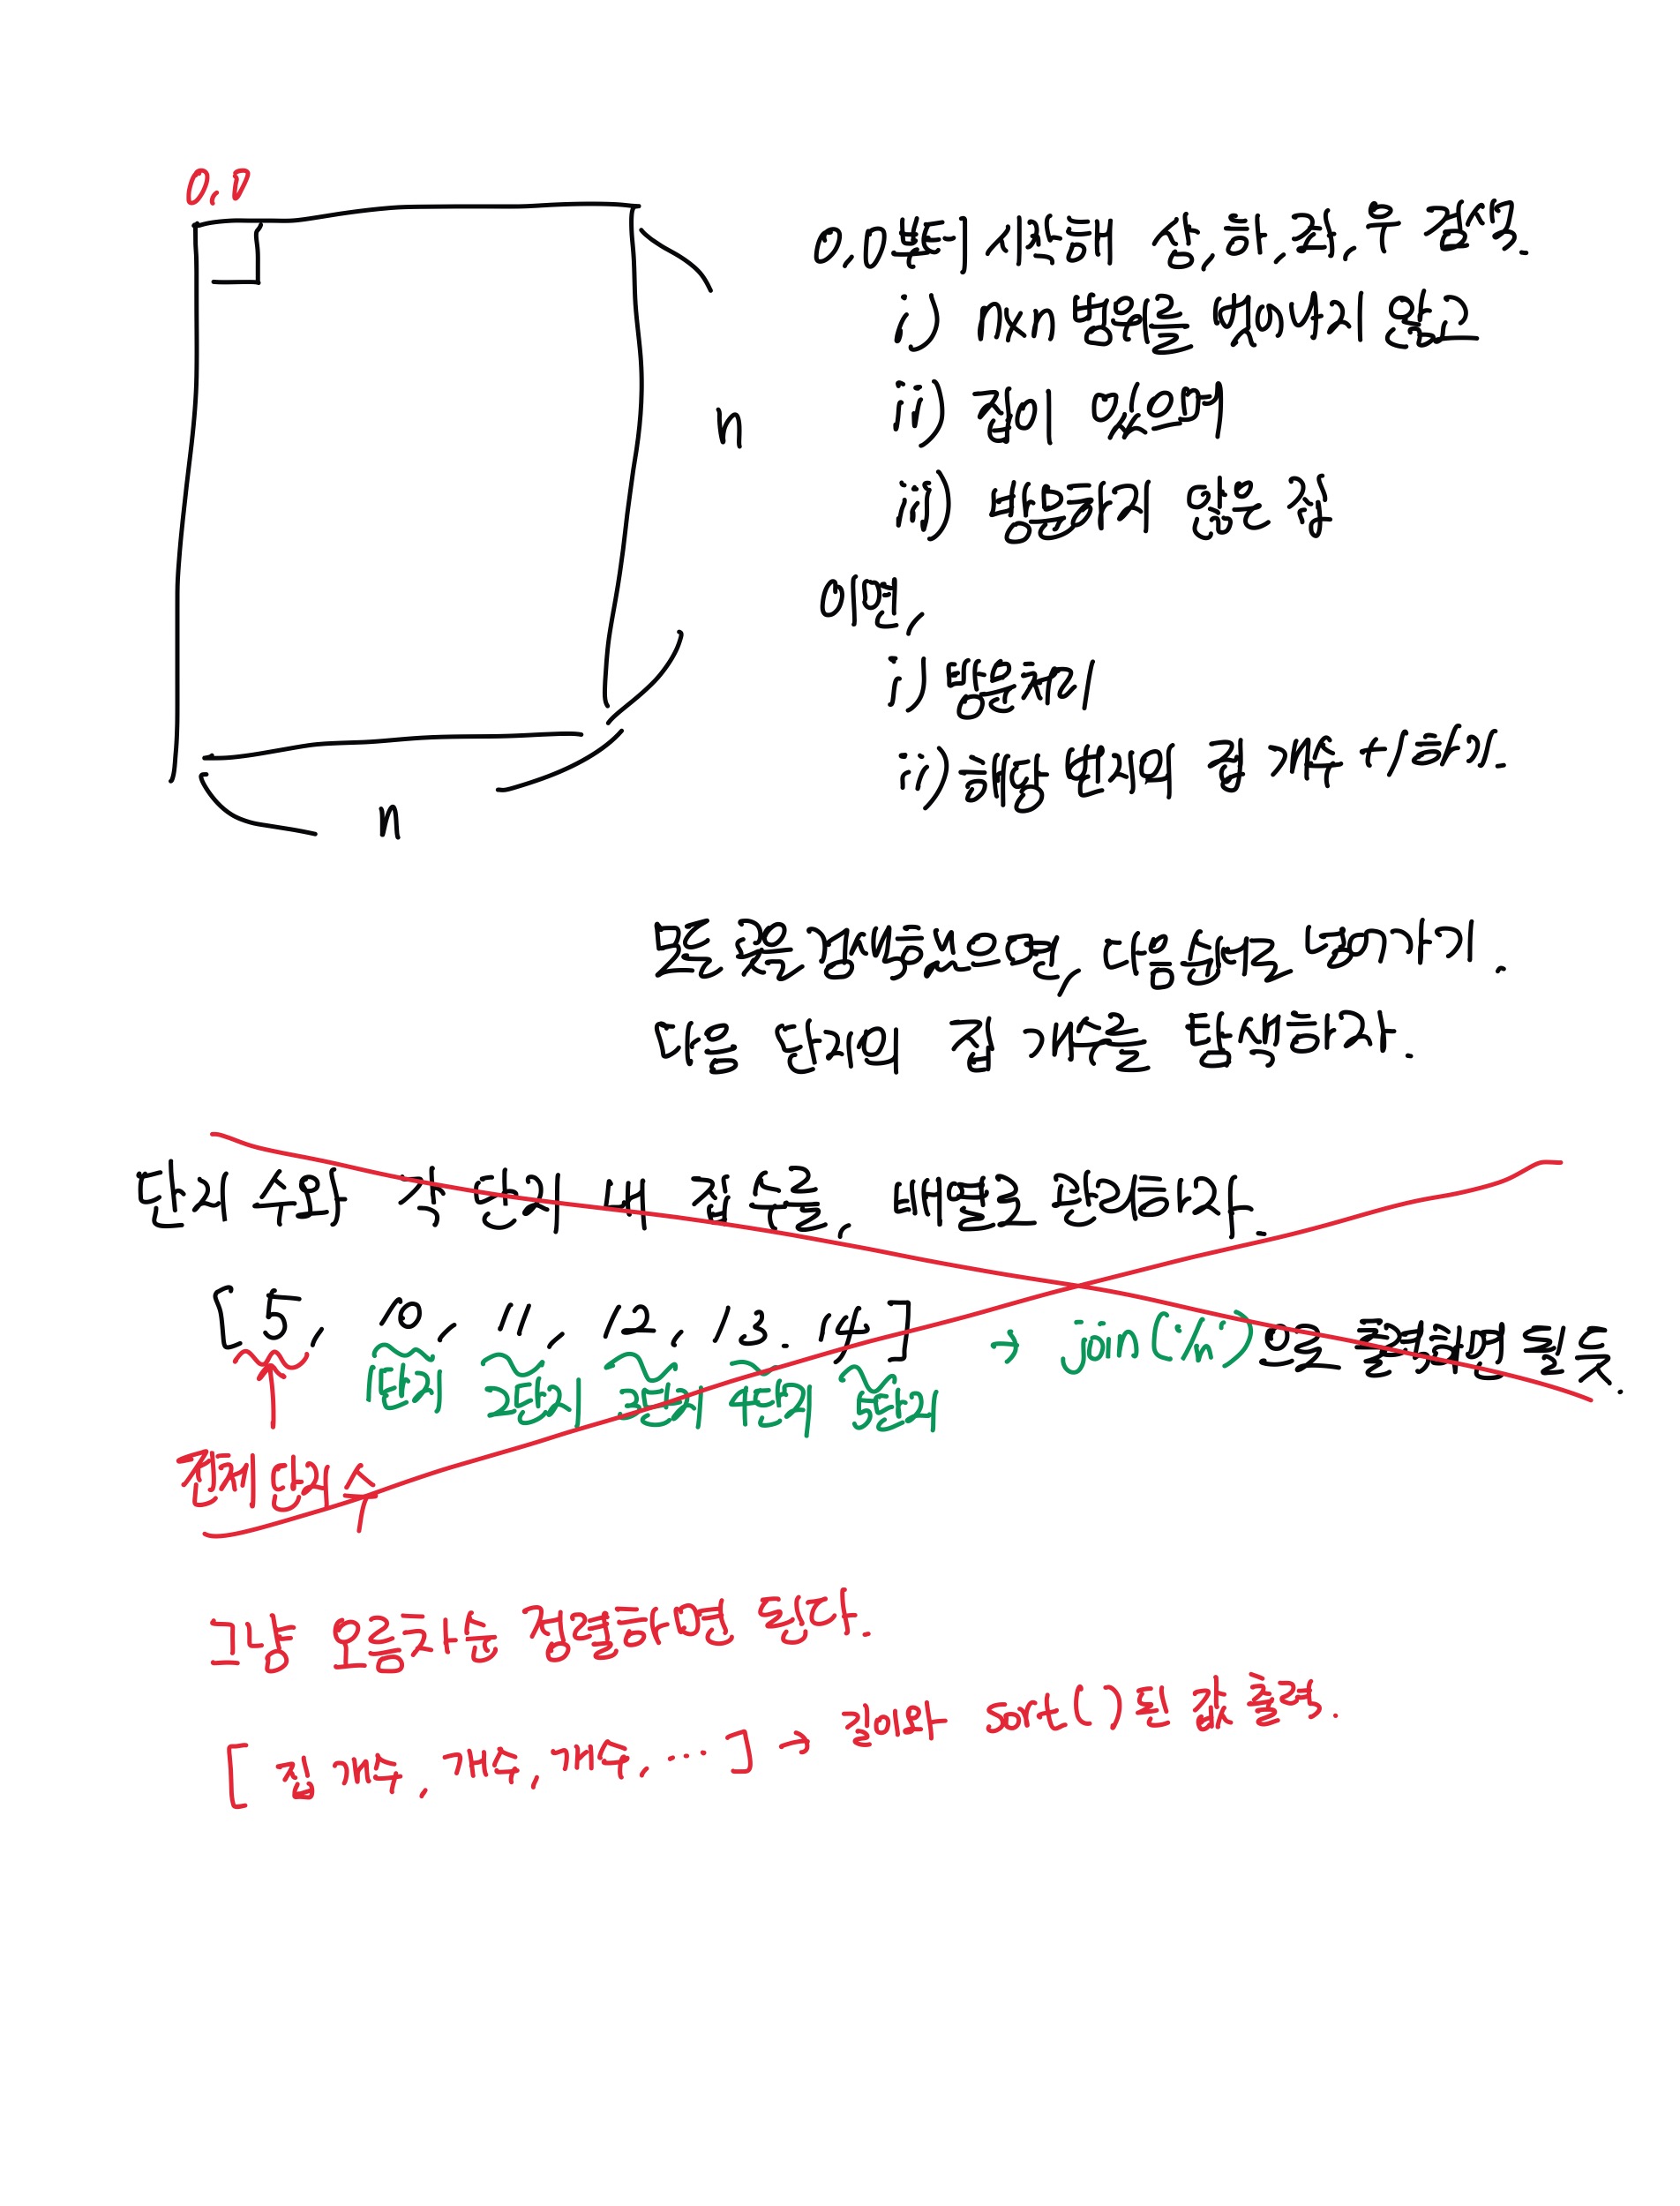 0,0
n
n
0,0부터 시작해 상,하,좌,우 검색.
i) n×n 범위를 벗어나지 않고
ii) 집이 있으며
iii) 방문하지 않은 집
이면,
i) 방문처리
ii) 해당 번지의 집 개수 +1하기.
모든 곳을 검색했으면, 다음 순서로 넘어가기.
다음 단지의 집 개수를 탐색하자.
단지 수와 각 단지 내 집 수를, 배열로 관리하자.
[5, 10, 11, 12, 13. 14] → join('\n')으로 출력하면 될 듯.
1단지 2단지 3단지 4단지 5단지
전체 단지 수
그냥 오름차순 정렬하면 된다.
[집 개수, 개수, 개수, ...] → 길이와 sort()된 값 출력.